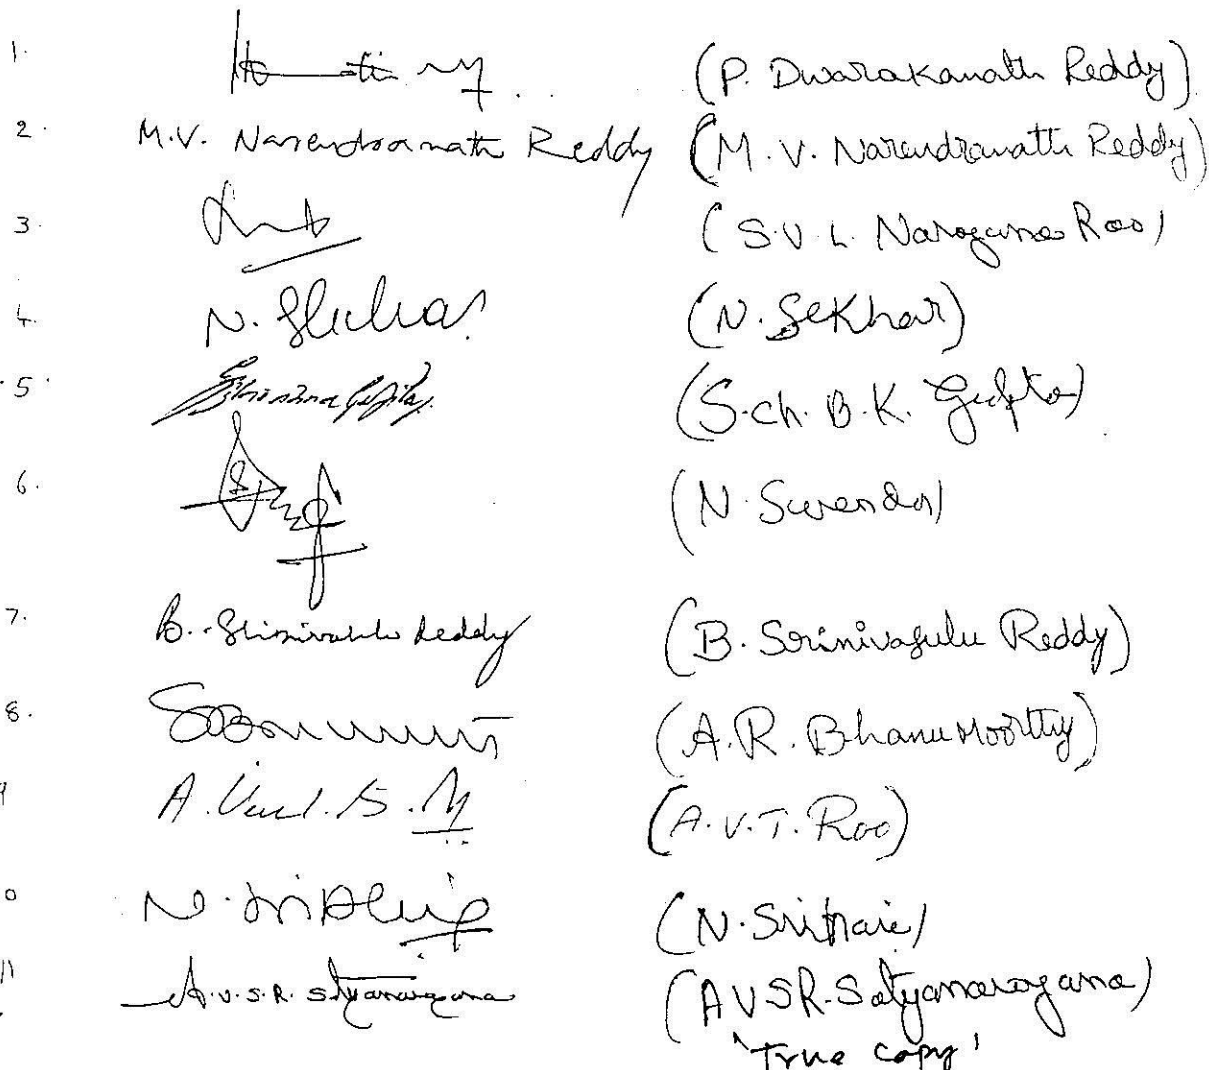 1. (P. Dwarakanath Reddy)
2. M.V. Narendranath Reddy (M.V. Narendranath Reddy)
3. (S.V.L. Narayana Rao)
4. N. Shekhar (N. SeKhar)
5. (S.ch. B.K. Gupta)
6. (N. Surendar)
7. B. Srinivasulu Reddy (B. Srinivasulu Reddy)
8. (A.R. Bhanu Moorthy)
9 (A.V.T. Rao)
0 (N. Srihari)
11 A.V.S.R. Satyanarayana (AVSR. Satyanarayana)
'True copy'